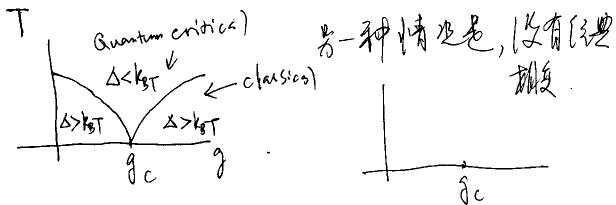 T
Quantum critical
Δ<k_BT
classical
Δ>k_BT
Δ>k_BT
g_c
g
另一种情况是,没有经典
相变.
g_c